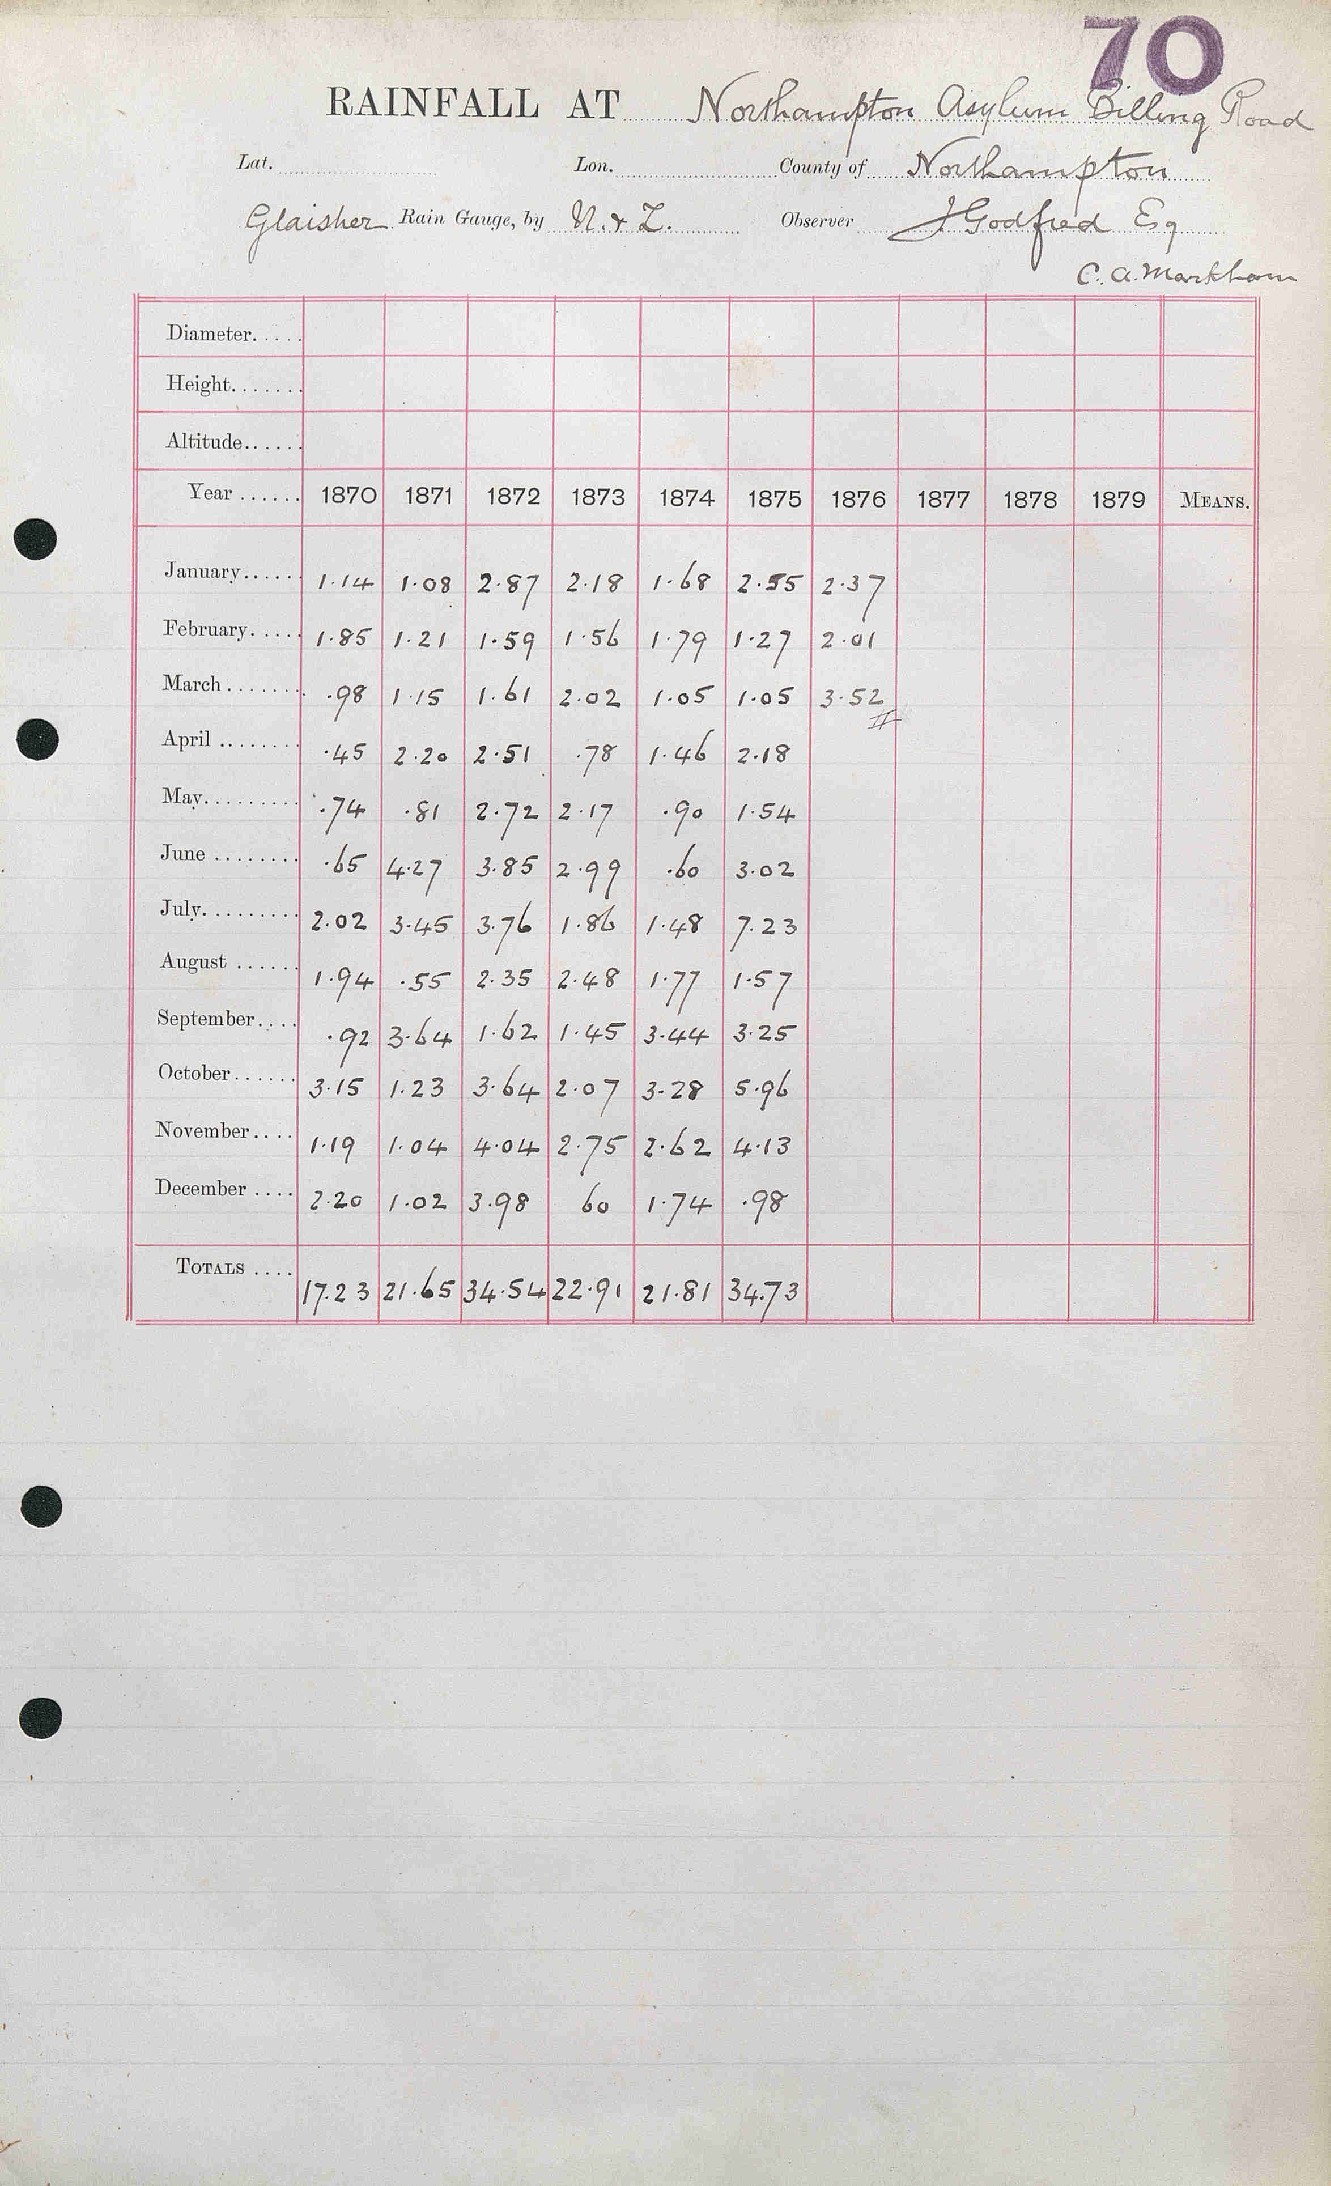 70
RAINFALL AT Northampton Asylum Billing Road
Lat. Lon. County of Northampton
Glaisher Rain Gauge, by N. & Z. Observer J Godfred Esq
C. A. Markham
Diameter
Height
Altitude
Year 1870 1871 1872 1873 1874 1875 1876 1877 1878 1879 MEANS.
January 1.14 1.08 2.87 2.18 1.68 2.55 2.37
February 1.85 1.21 1.59 1.56 1.79 1.27 2.01
March .98 1.15 1.61 2.02 1.05 1.05 3.52
April .45 2.20 2.51 .78 1.46 2.18
May .74 .81 2.72 2.17 .90 1.54
June .65 4.27 3.85 2.99 .60 3.02
July 2.02 3.45 3.76 1.86 1.48 7.23
August 1.94 .55 2.35 2.48 1.77 1.57
September .92 3.64 1.62 1.45 3.44 3.25
October 3.15 1.23 3.64 2.07 3.28 5.96
November 1.19 1.04 4.04 2.75 2.62 4.13
December 2.20 1.02 3.98 60 1.74 .98
TOTALS 17.23 21.65 34.54 22.91 21.81 34.73